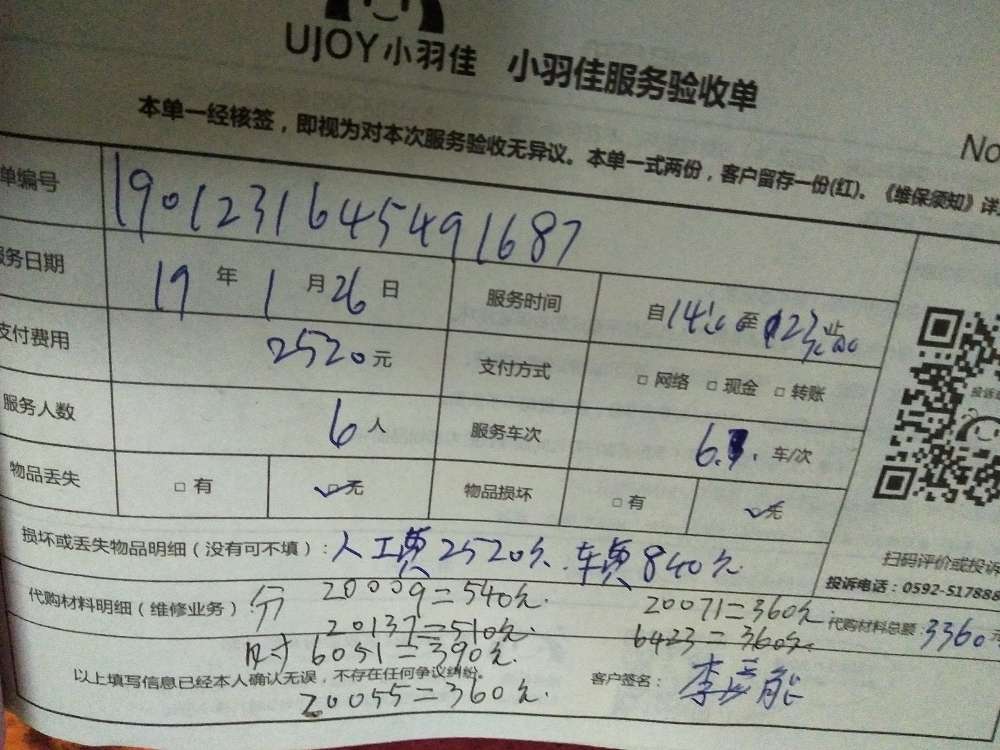 UJOY小羽佳 小羽佳服务验收单
本单一经核签，即视为对本次服务验收无异议。本单一式两份，客户留存一份(红)。《维保须知》详
No
单编号 1901231645491687
服务日期 19 年 1 月 26 日 服务时间 自 至
支付费用 2520 元 支付方式 □ 网络 □ 现金 □ 转账
服务人数 6 人 服务车次 车/次
物品丢失 □ 有 □无 物品损坏 □ 有 无
损坏或丢失物品明细（没有可不填）： 人工费2520元. 车费840元
扫码评价或投诉
投诉电话：0592-517888
代购材料明细（维修业务） 20009=540元. 20071=360元 代购材料总额：3360
20137=510元. 6423=360元.
6051=390元.
以上填写信息已经本人确认无误，不存在任何争议纠纷。 客户签名：
20055=360元.